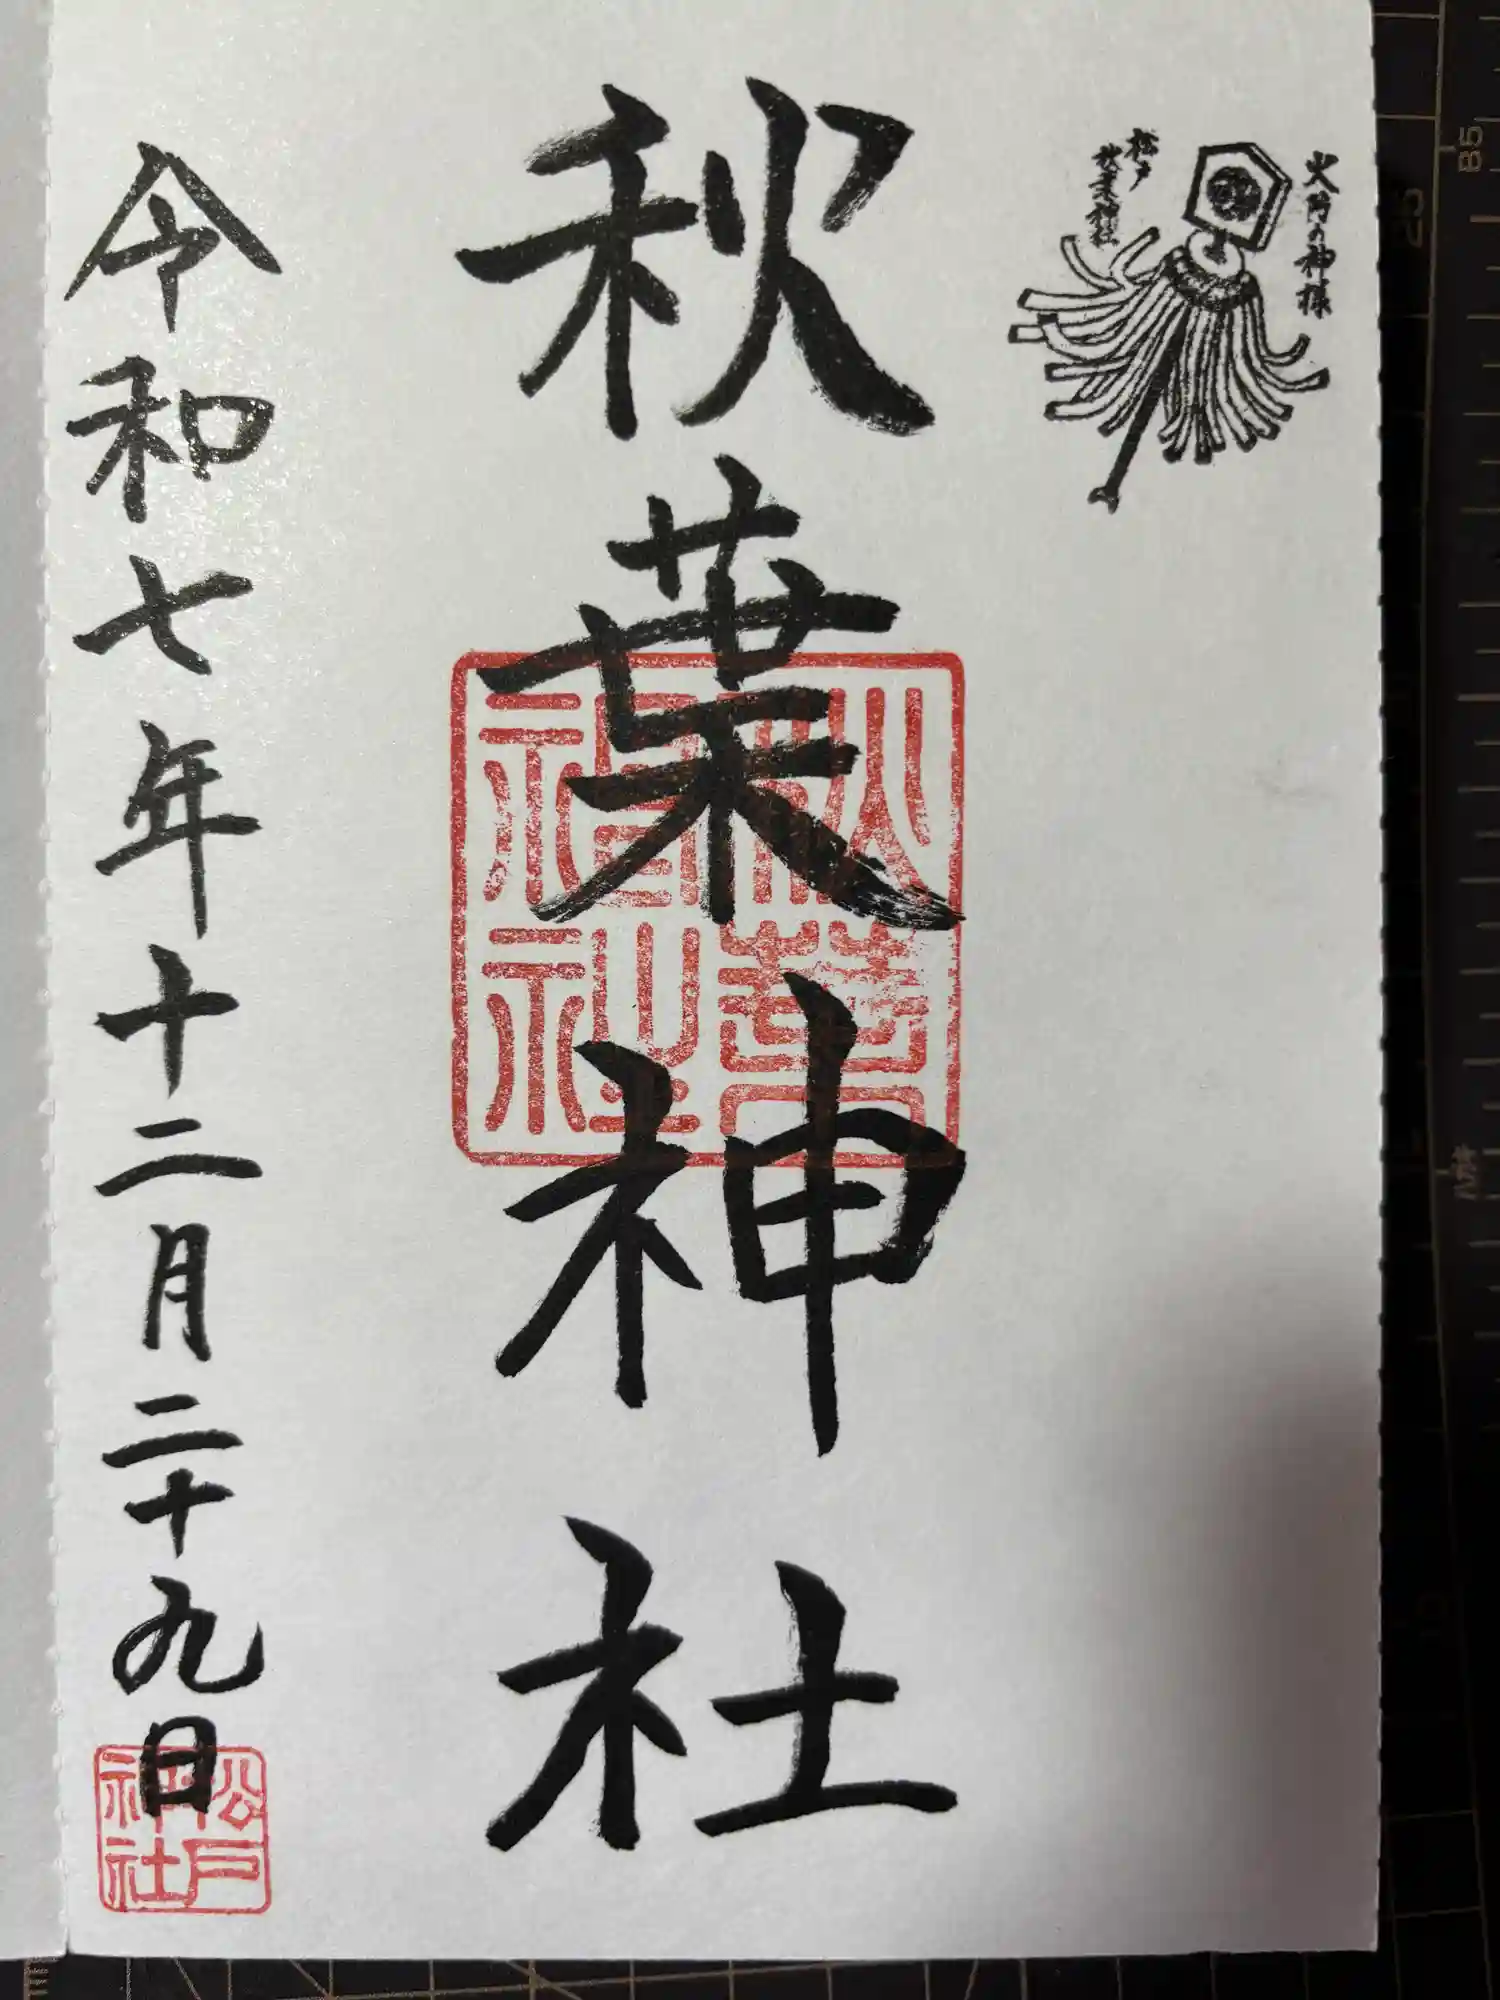 火防の神様
松戸
秋葉神社
秋葉神社
秋葉
神社
令和七年十二月二十九日
松戸
神社
85
25